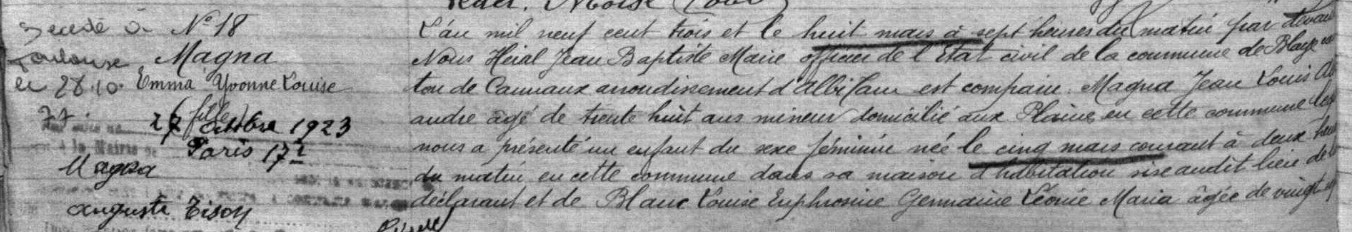 N° 18
Magna
Emma Yvonne Louise
(fille)
Décédé à
Toulouse
le 28.10.
77.
27 octobre 1923
Paris 17e
Magna
Auguste Tison
L'an mil neuf cent trois et le huit mars à sept heures du matin par devant
Nous Héral Jean Baptiste Marie officier de l'Etat civil de la commune de Blaye
ton de Carmaux arrondissement d'Albi Tarn est comparu Magna Jean Louis
andre âgé de trente huit ans mineur domicilié aux Plaines en cette commune
nous a présenté un enfant du sexe féminin née le cinq mars courant à deux
du matin en cette commune dans sa maison d'habitation sise audit lieu de
déclarant et de Blanc Louise Euphrosine Germaine Léonie Maria âgée de vingt